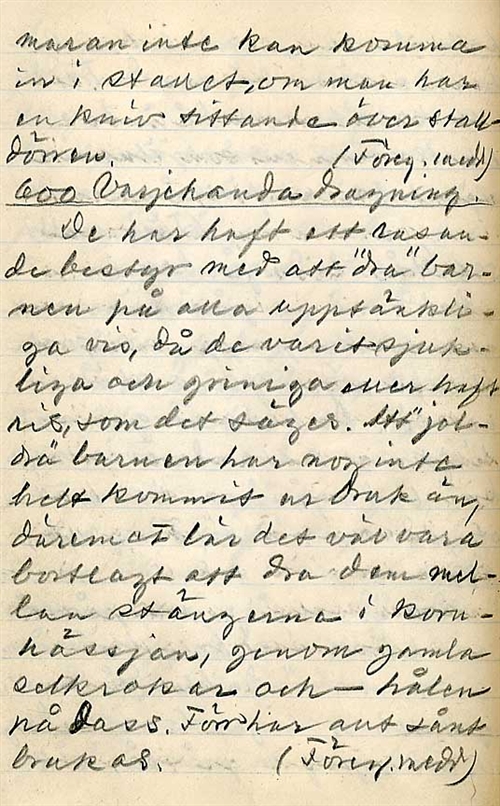 maran inte kan komma
in i stallet, om man har
en kniv sittande över stall
dörren. (Föreg. medd)
600 Varjehanda dragning.
De har haft ett rasan-
de bestyr med att "dra" bar-
nen på alla upptänkli-
ga vis, då de varit sjuk-
liga och griniga eller haft
ris, som det säges. Att "jol-
dra" barnen har nog inte
helt kommit ur bruk än,
däremot lär det väl vara
bortlagt att dra dem mel-
lan stängerna i korn-
hässjan, genom gamla
selkrokar och hålen
på dass. Förr har allt sånt
brukas. (Föreg. medd)